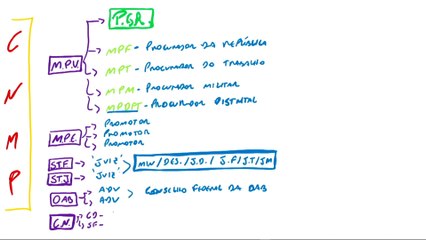 C
N
M
P
P.G.R.
M.P.U.
MPF - PROCURADOR DA REPÚBLICA
MPT - PROCURADOR DO TRABALHO
MPM - PROCURADOR MILITAR
MPDFT - PROCURADOR DISTRITAL
M.P.E.
PROMOTOR
PROMOTOR
PROMOTOR
STF
"JUIZ"
STJ
"JUIZ
MIN/DES./J.D./J.F/J.T/JM
OAB
ADV
ADV
CONSELHO FEDERAL DA OAB
C.N.
CD-
SF-